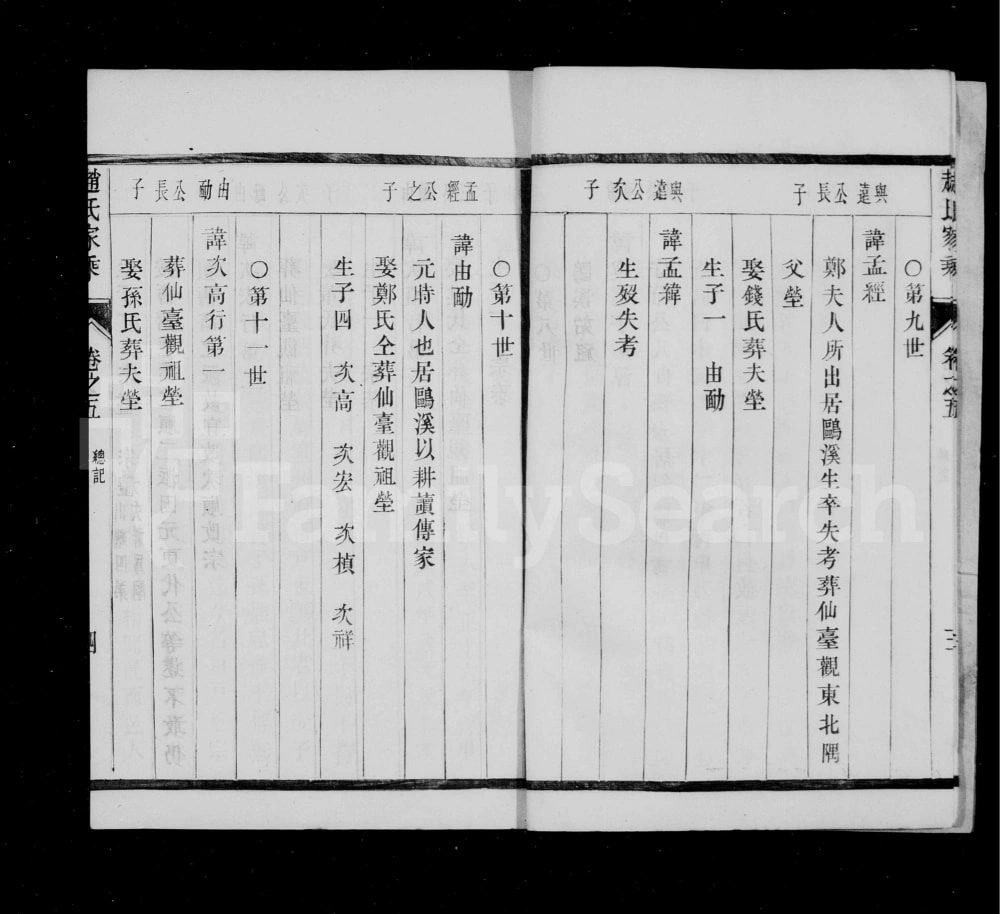 趙氏家乘 卷之五 三
○第九世
與遠公長子
諱孟經
鄭夫人所出居鷗溪生卒失考葬仙臺觀東北隅
父塋
娶錢氏葬夫塋
生子一 由勔
與遠公次子
諱孟緯
生歿失考
○第十世
孟經公之子
諱由勔
元時人也居鷗溪以耕讀傳家
娶鄭氏仝葬仙臺觀祖塋
生子四 次高 次宏 次楨 次祥
○第十一世
由勔公長子
諱次高行第一
葬仙臺觀祖塋
娶孫氏葬夫塋
趙氏家乘 卷之五 總記 四
FamilySearch